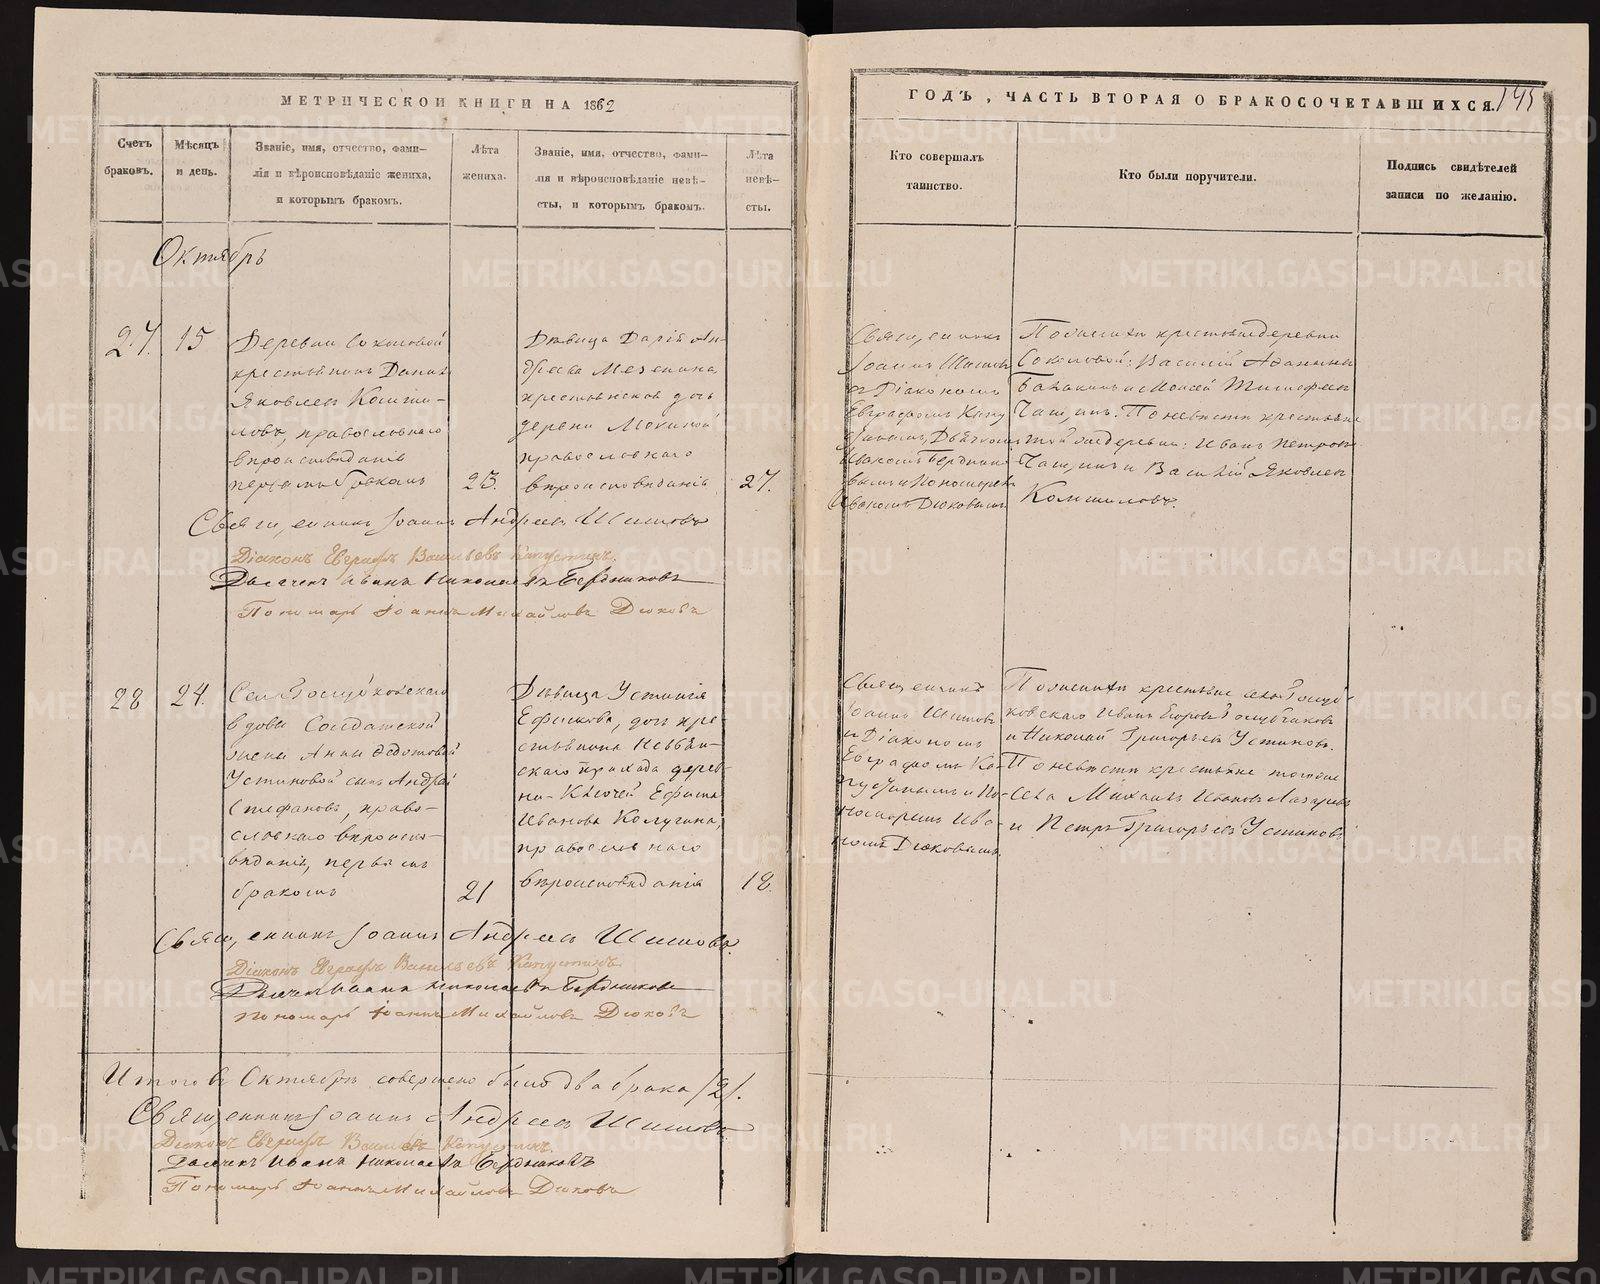 МЕТРИЧЕСКОЙ КНИГИ НА 1862
ГОДЪ, ЧАСТЬ ВТОРАЯ О БРАКОСОЧЕТАВШИХСЯ.
145
Счетъ браковъ.
Мѣсяцъ и день.
Званіе, имя, отчество, фами-
лія и вѣроисповѣданіе жениха,
и которымъ бракомъ.
Лѣта жениха.
Званіе, имя, отчество, фами-
лія и вѣроисповѣданіе невѣ-
сты, и которымъ бракомъ.
Лѣта невѣ-
сты.
Кто совершалъ
таинство.
Кто были поручители.
Подпись свидѣтелей
записи по желанію.
Октябрь
27.
15
Деревни Соколовой
крестьянинъ
Яковлевъ
православнаго
вѣроисповѣданія
первымъ бракомъ
23.
Дѣвица Дарія Ан-
дреева Мезенина
крестьянская дочь
деревни Мокиной
православнаго
вѣроисповѣданія
27.
Священникъ
Іоаннъ Шишовъ
съ Діакономъ
Евграфомъ Капу
Дьячкомъ
Иваномъ Бердник
Пономаремъ
Иваномъ Дюковымъ
По женихѣ крестьяне деревни
Соколовой: Василій
и Моисей Тимофеевъ
По невѣстѣ крестьяне
той же деревни: Иванъ Петровъ
и Василій Яковлевъ
Священникъ Іоаннъ Андреевъ Шишовъ
Діаконъ Евграфъ Васильевъ Капустинъ.
Дьячекъ Иванъ Николаевъ Бердниковъ
Пономарь Іоаннъ Михайловъ Дюковъ
28
24.
Села
вдовы Солдатской
жены Анны Федотовой
Устиновой сынъ Андрей
Стефановъ, право-
славнаго вѣроиспо-
вѣданія, первымъ
бракомъ
21
Дѣвица Устинія
Ефимова, дочь кре
стьянина Невьян-
скаго прихода дерев-
ни Ключей Ефима
Иванова Калугина,
православнаго
вѣроисповѣданія
18.
Священникъ
Іоаннъ Шишовъ
съ Діакономъ
Евграфомъ Ка-
пустинымъ и По-
номаремъ Ива-
номъ Дюковымъ.
По женихѣ крестьяне села
Иванъ Егоровъ
и Николай Григорьевъ Устиновъ.
По невѣстѣ крестьяне того же
села Михаилъ Ивановъ Лазаревъ
и Петръ Григорьевъ Устиновъ
Священникъ Іоаннъ Андреевъ Шишовъ.
Діаконъ Евграфъ Васильевъ Капустинъ.
Дьячекъ Иванъ Николаевъ Бердниковъ
Пономарь Іоаннъ Михайловъ Дюковъ
Итого въ Октябрѣ совершено было два брака /2/.
Священникъ Іоаннъ Андреевъ Шишовъ
Діаконъ Евграфъ Васильевъ Капустинъ.
Дьячекъ Иванъ Николаевъ Бердниковъ
Пономарь Іоаннъ Михайловъ Дюковъ
METRIKI.GASO-URAL.RU